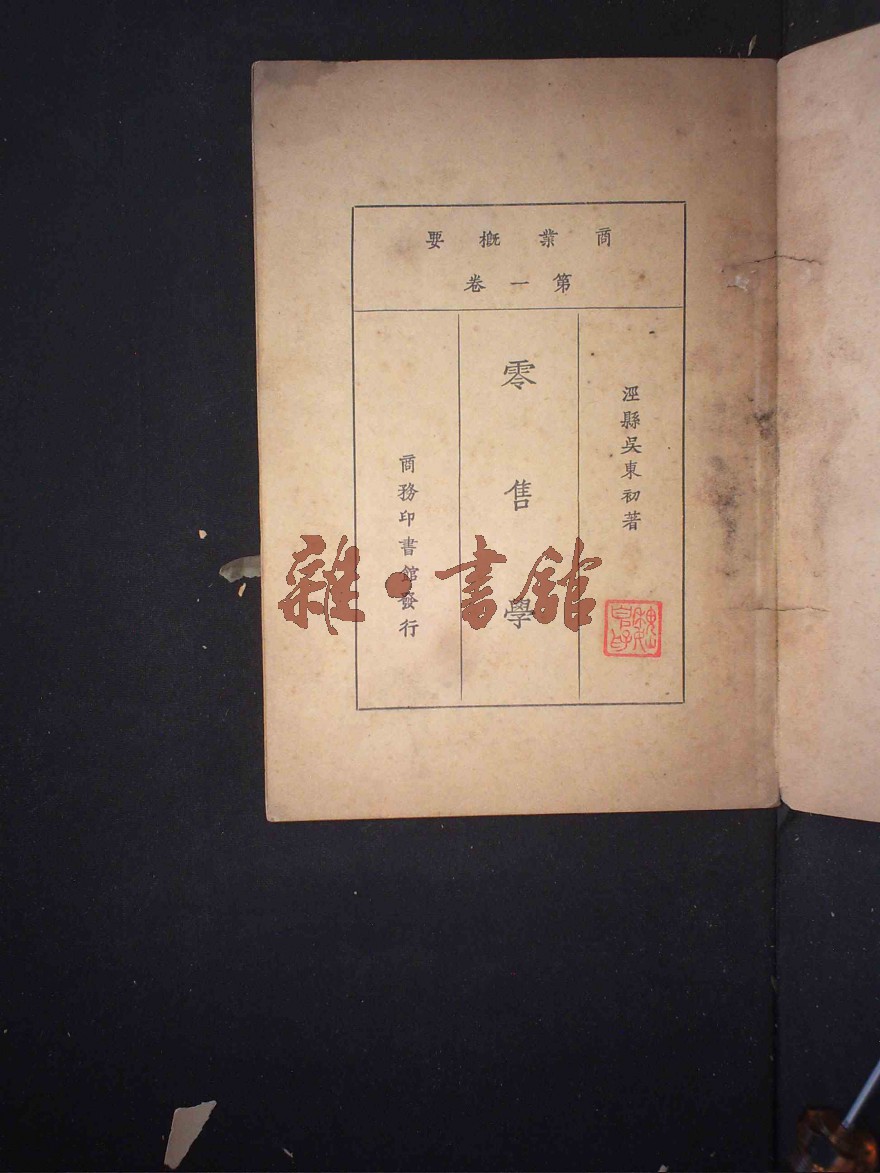 商業概要
第一卷
涇縣吳東初著
零售學
商務印書館發行
雜·書館